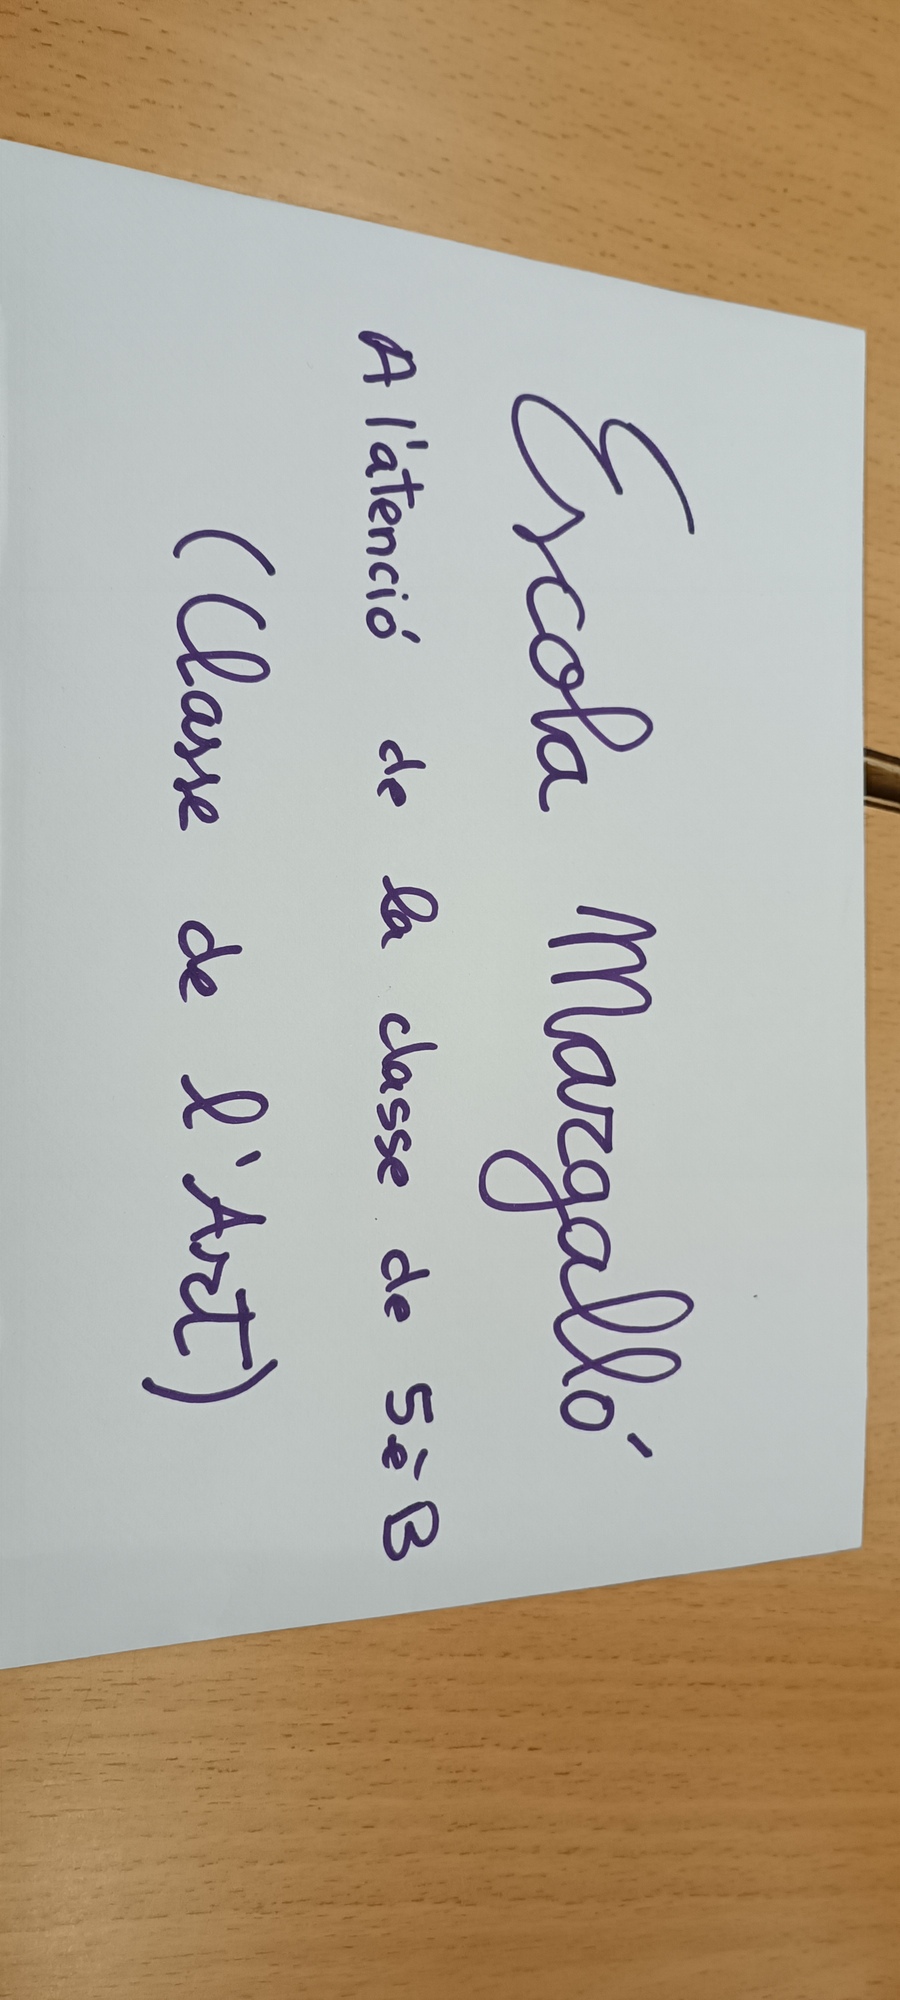 Escola Margalló
A l'atenció de la classe de 5è B
(Classe de l'Art)